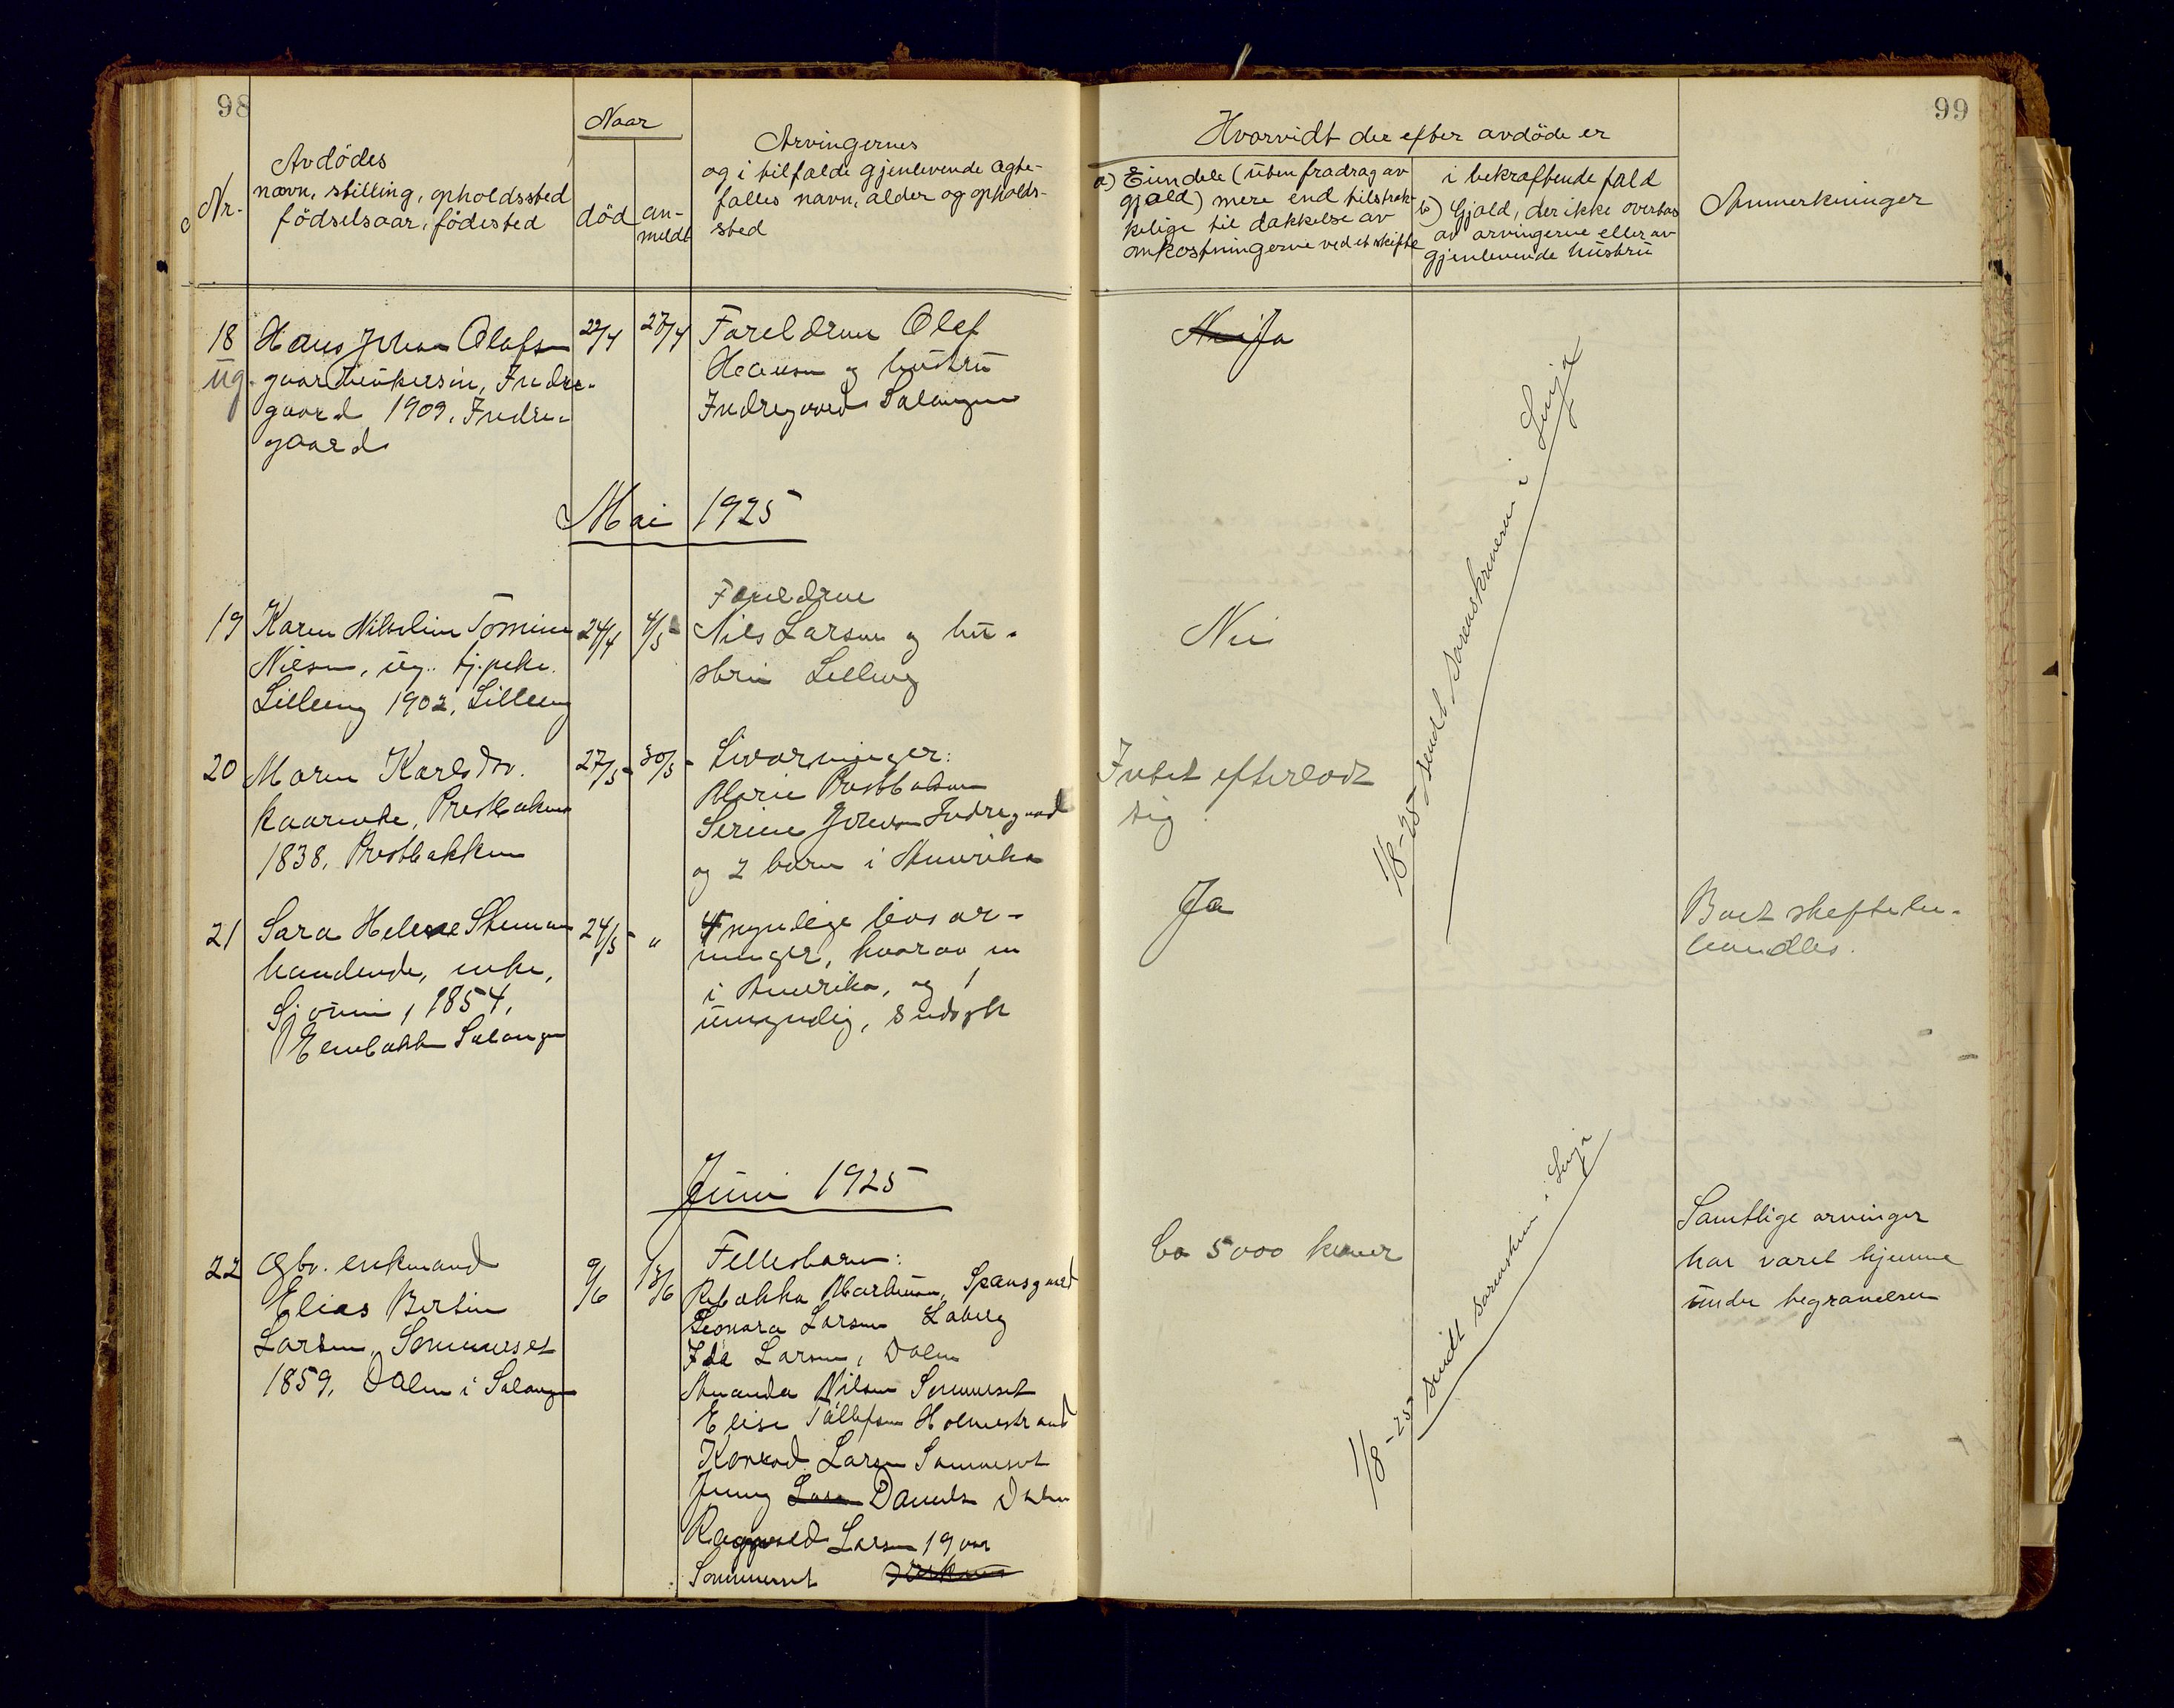 98
Nr.
Avdödes
navn, stilling, opholdssted
födselsaar, födested
Naar
död
an-
meldt
Arvingernes
og i tilfælde gjenlevende ægte-
fælles navn, alder og opholds-
sted
18
ug.
Hans Johan Olafsen
gaardbrukersön, Indre-
gaard 1909. Indre-
gaard
22/4
27/4
Foreldrene Olef
Hansen og hustru
Indregaard Salangen
Mai 1925
19
Karen Nilseline Tomine
Nilsen, ug. tj.pike.
Lilleng 1902, Lilleng
24/4
4/5
Foreldrene
Nils Larsen og hu-
stru Lilleng
20
Maren Karlsdtr.
kaarenke, Prestbakken
1838, Prestbakken
27/5
30/5
Livsarvinger:
Marie Prestbakken
Serine Johnsen Indregaard
og 2 barn i Amerika
21
Sara Helene
handlende, enke,
Sjövein, 1854,
Elvebakken Salangen
24/5
"
4 myndige livsar-
vinger, hvorav en
i Amerika, og 1
umyndig,
Juni 1925
22
Gbr. enkemand
Elias Bertin
Larsen, Sommerset
1859, Dalen i Salangen
9/6
13/6
Fellesbarn:
Rebekka Markusen, Spansgaard
Leonara Larsen Laberg
Ida Larsen, Dalen
Amanda Nilsen Sommerset
Elise Tollefsen Holmestrand
Konrad Larsen Sommerset
Jenny Larsen Daniels Dalen
Ragnvald Larsen 19 aar
Sommerset
99
Hvorvidt der efter avdöde er
a) Eiendele (uten fradrag av
gjæld) mere end tilstræk-
kelige til dækkelse av
omkostningerne ved et skifte
i bekræftende fald
b) Gjæld, der ikke overtas
av arvingerne eller av
gjenlevende hustru
Anmerkninger
Nei Ja
Nei
Intet efterlodt
sig
Ja
Boet skiftebe-
handles.
1/8-25 sendt sorenskriveren i Senja
ca 5000 kroner
Samtlige arvinger
har været hjemme
under begravelsen
1/8-25 sendt sorenskriv. i Senja